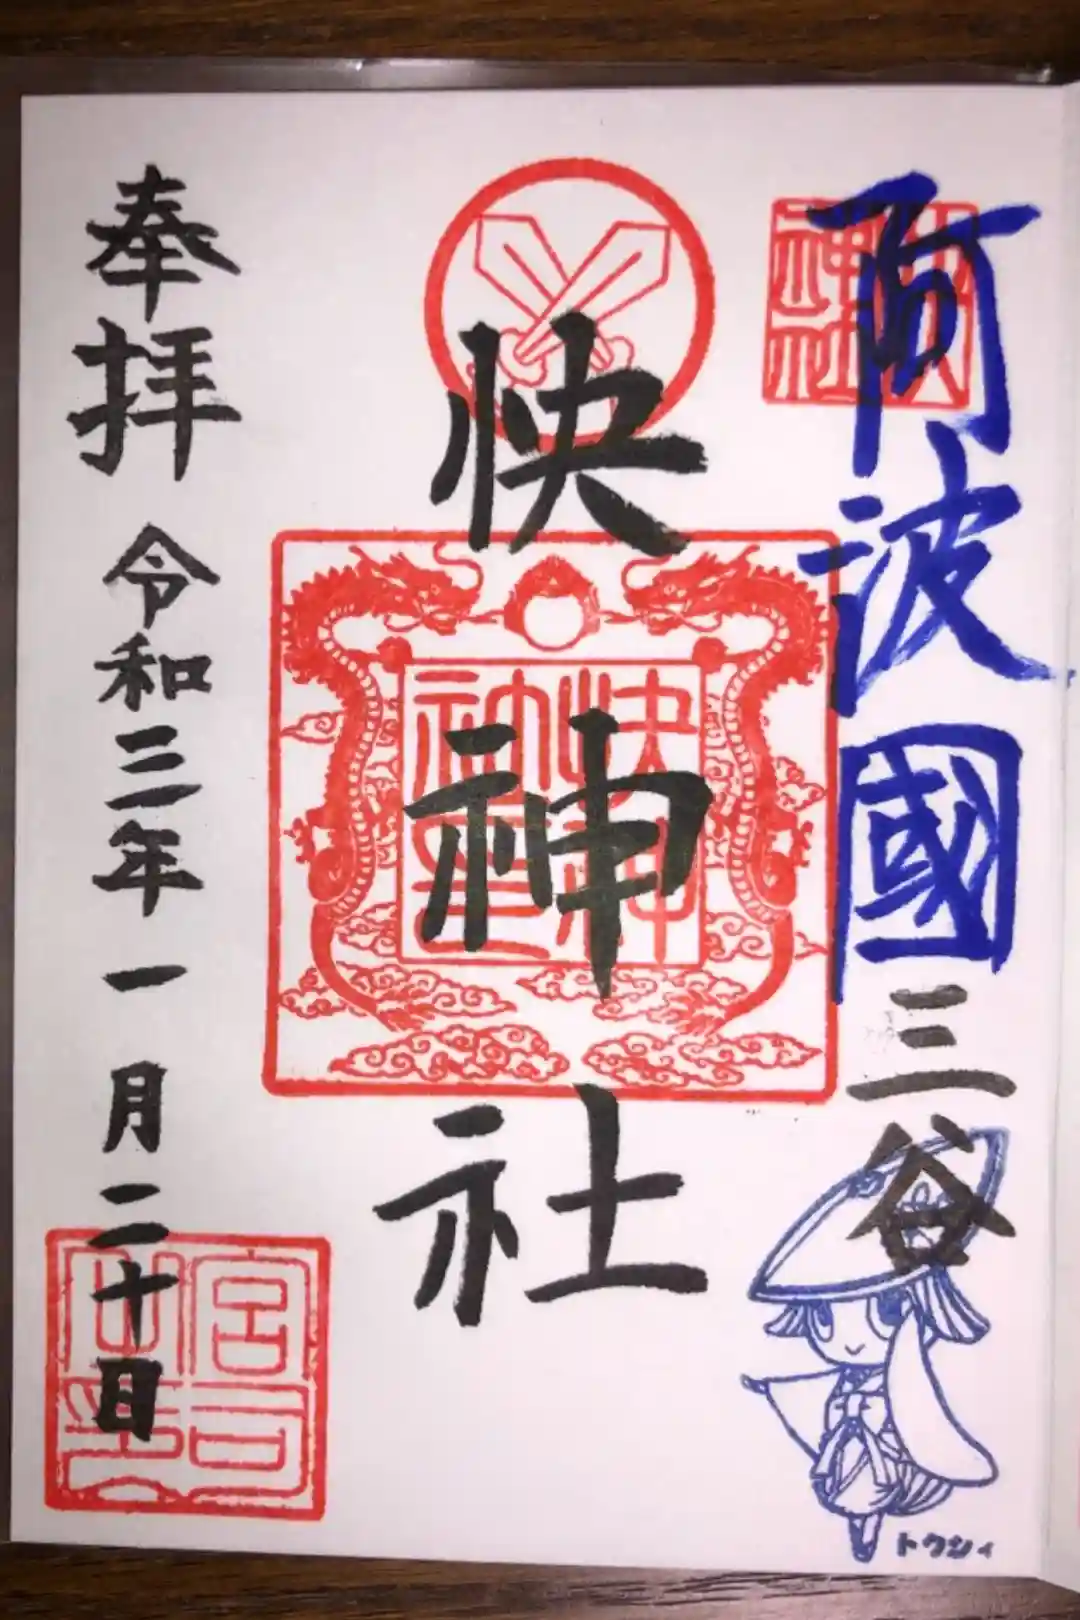 阿波國三谷
快神社
奉拝 令和三年一一月二十日
快神社
快神社印
宮司之印
トクシィ